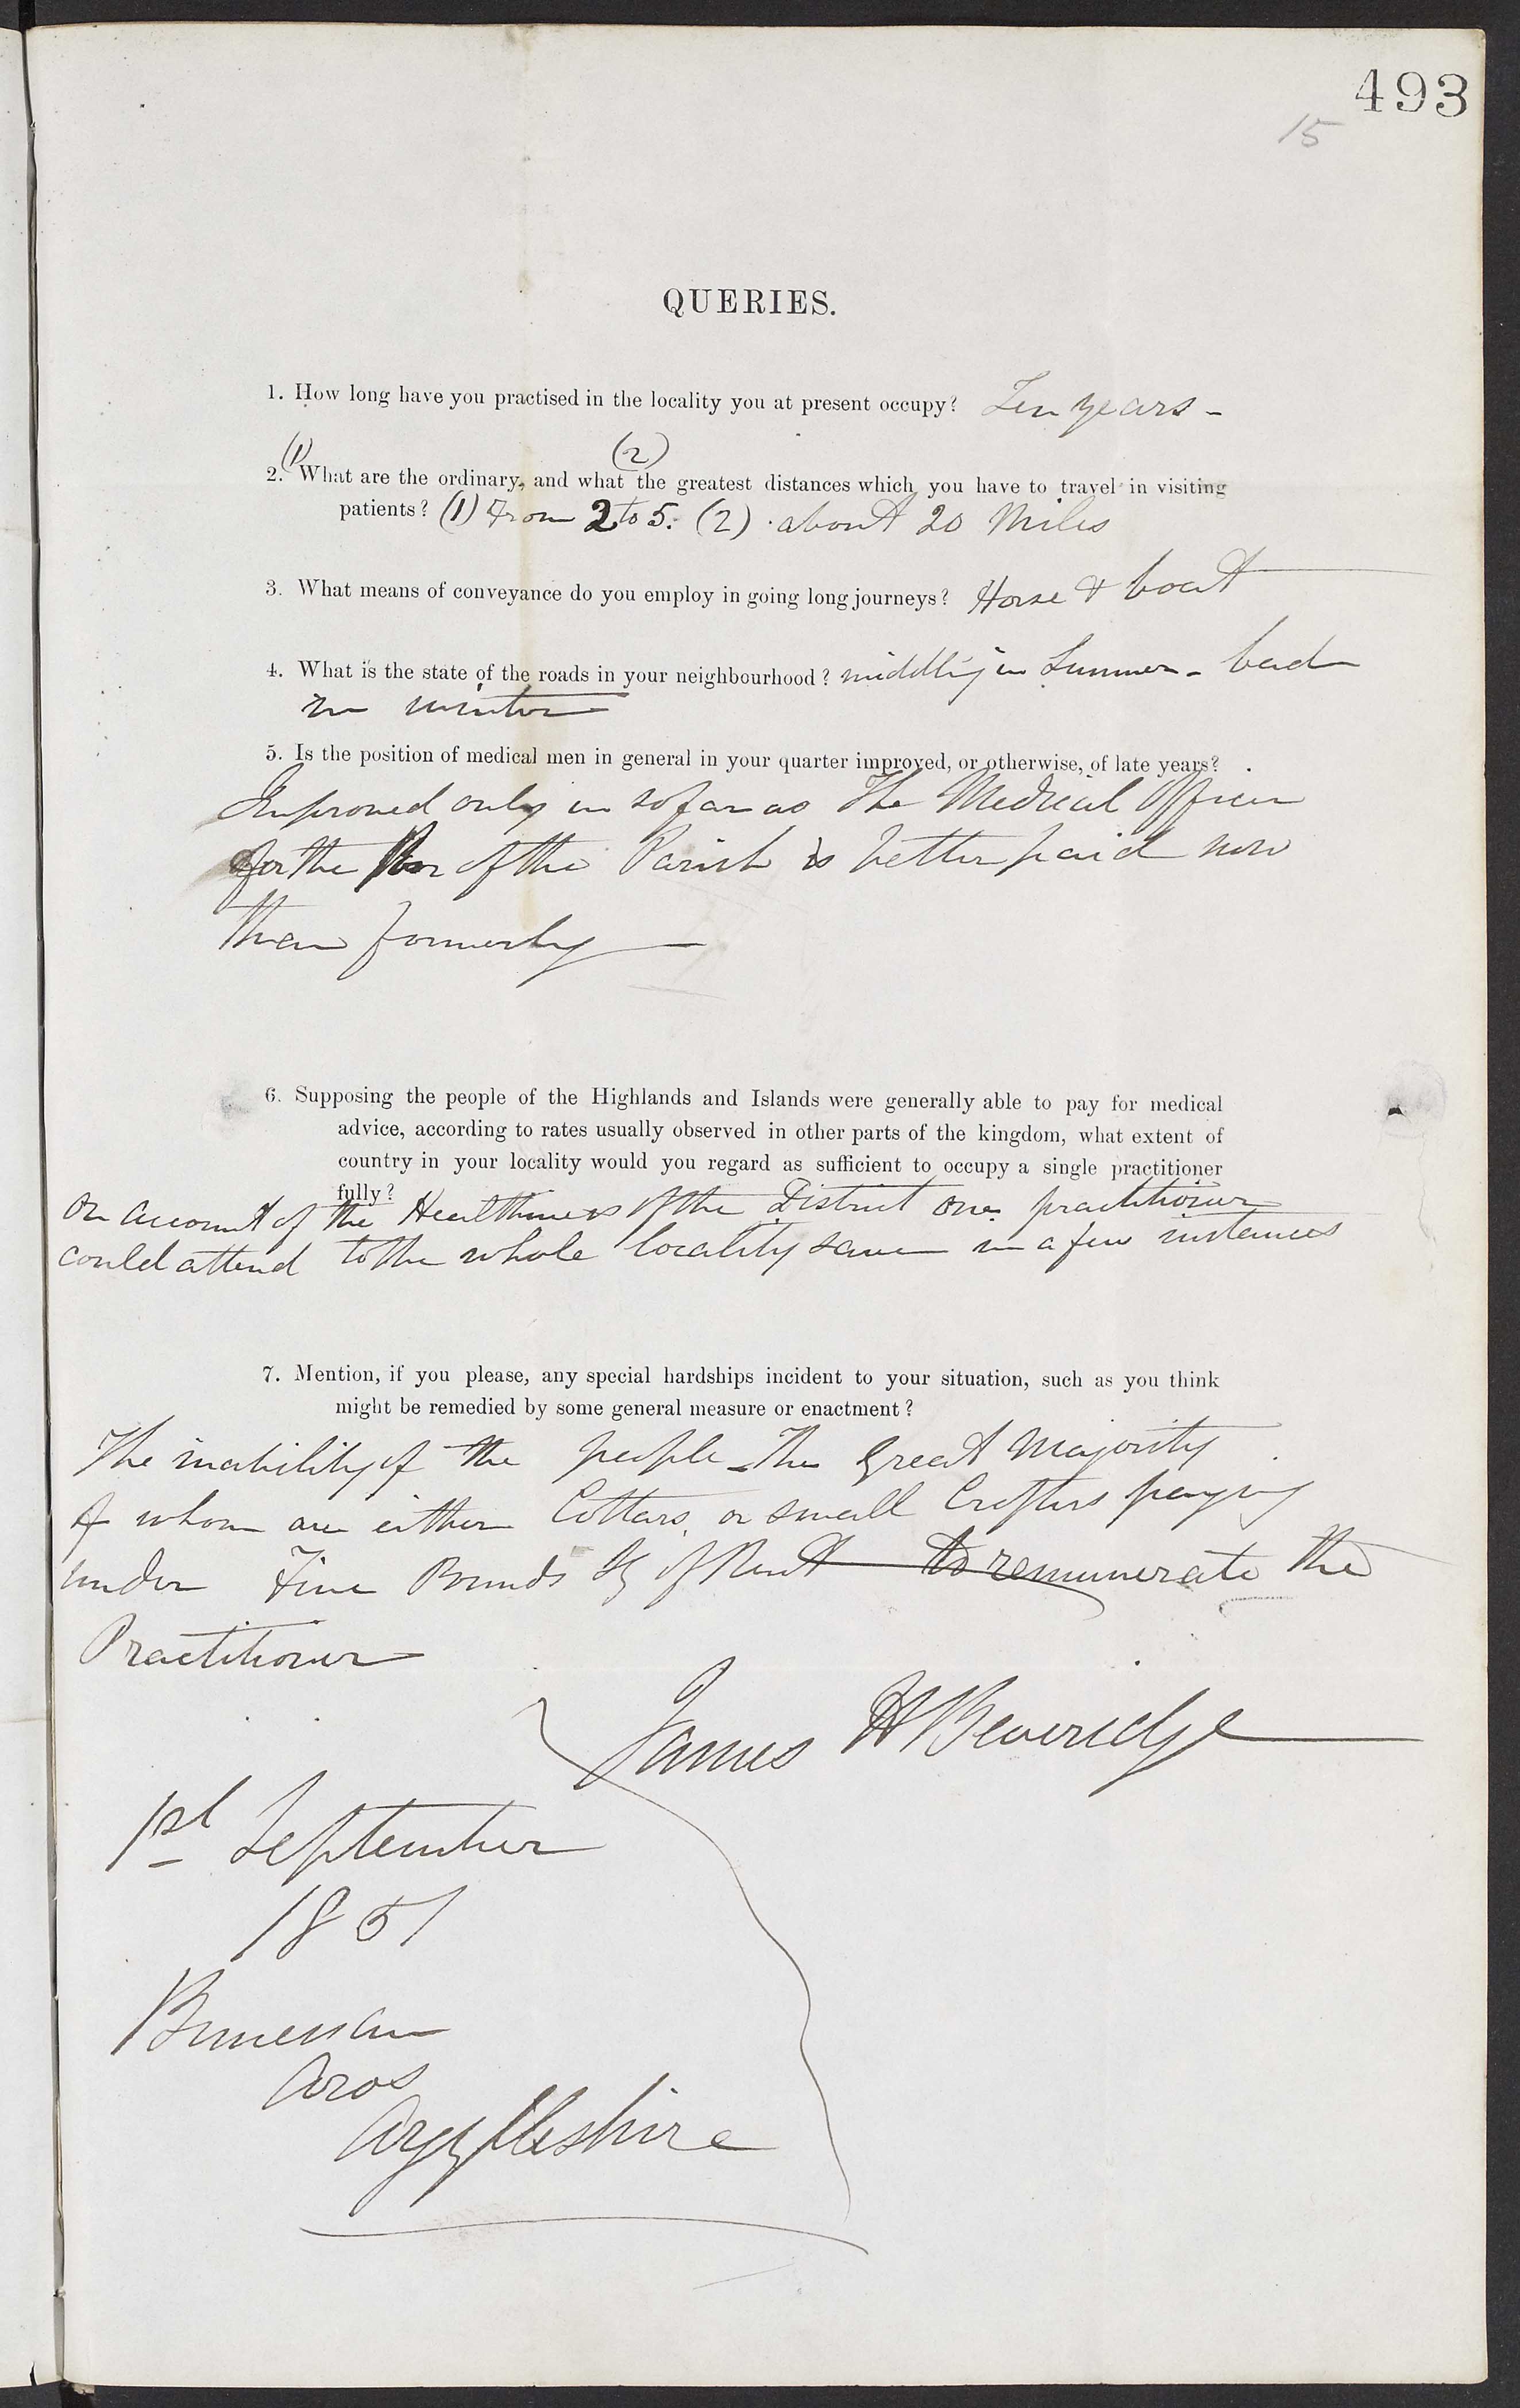 493
15
QUERIES.
1. How long have you practised in the locality you at present occupy? Ten years -
(1) (2)
2. What are the ordinary, and what the greatest distances which you have to travel in visiting
patients? (1) From 2 to 5. (2) about 20 Miles
3. What means of conveyance do you employ in going long journeys? Horse & boat
4. What is the state of the roads in your neighbourhood? middling in Summer - bad
in winter
5. Is the position of medical men in general in your quarter improved, or otherwise, of late years?
Improved only in so far as the Medical Officer
for the Poor of the Parish is better paid now
than formerly
6. Supposing the people of the Highlands and Islands were generally able to pay for medical
advice, according to rates usually observed in other parts of the kingdom, what extent of
country in your locality would you regard as sufficient to occupy a single practitioner
fully?
On account of the Healthiness of the District one practitioner
could attend to the whole locality save in a few instances
7. Mention, if you please, any special hardships incident to your situation, such as you think
might be remedied by some general measure or enactment?
The inability of the people - The Great Majority
of whom are either Cottars or small Crofters paying
under Five Pounds of Rent to remunerate the
Practitioner
James H Beveridge
1st September
1851
Bunessan
Aros
Argylleshire